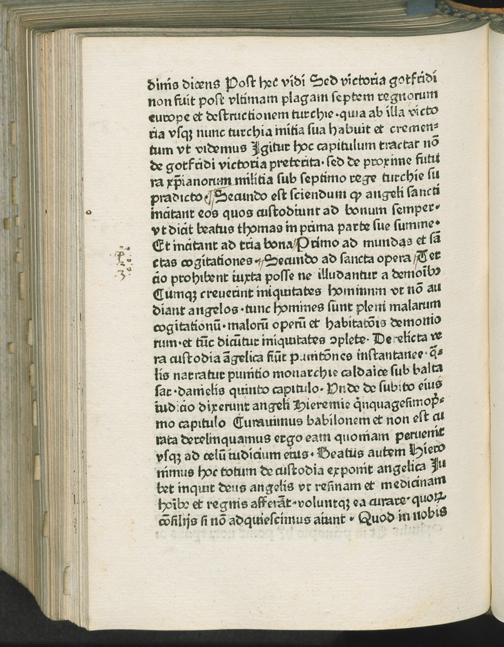 dinis dicens Post hec vidi Sed victoria gotfridi
non fuit post vltimam plagam septem regnorum
europe et destructionem turchie · quia ab illa victo
ria vsqꝫ nunc turchia initia sua habuit et cremen⸗
tum vt videmus Igitur hoc capitulum tractat nō
de gotfridi victoria preterita · sed de proxime futu
ra xp̄ianorum militia sub septimo rege turchie su
pradicto Secundo est sciendum ꝙ angeli sancti
incitant eos quos custodiunt ad bonum semper ·
vt dicit beatus thomas in prima parte sue summe ·
Et incitant ad tria bona Primo ad mundas et sā
ctas cogitationes · Secundo ad sancta opera Ter
cio prohibent iuxta posse ne illudantur a demoībꝫ
Cumqꝫ creuerint iniquitates hominum vt nō au
diant angelos · tunc homines sunt pleni malarum
cogitationū · malorū operū et habitatōis demonio
rum · et tūc dicūtur iniquitates ꝯplete · Derelicta ve
ra custodia āgelica fiūt punitōnes instantanee · q̄⸗
lis narratur punitio monarchie caldaice sub balta
sar · danielis quinto capitulo · Vnde de subito eius
iudicio dixerunt angeli Hieremie q̄nquagesimop̄⸗
mo capitulo Curauimus babilonem et non est cu
rata derelinquamus ergo eam quoniam peruenit
vsqꝫ ad celū iudicium eius · Beatus autem Hiero
nimus hoc totum de custodia exponit angelica Iu
bet inquit deus angelis vt resinam et medicinam
hoībꝫ et regnis afferāt · voluntqꝫ ea curare · quoꝝ
cōsilijs si nō adquiescimus aiunt · Quod in nobis